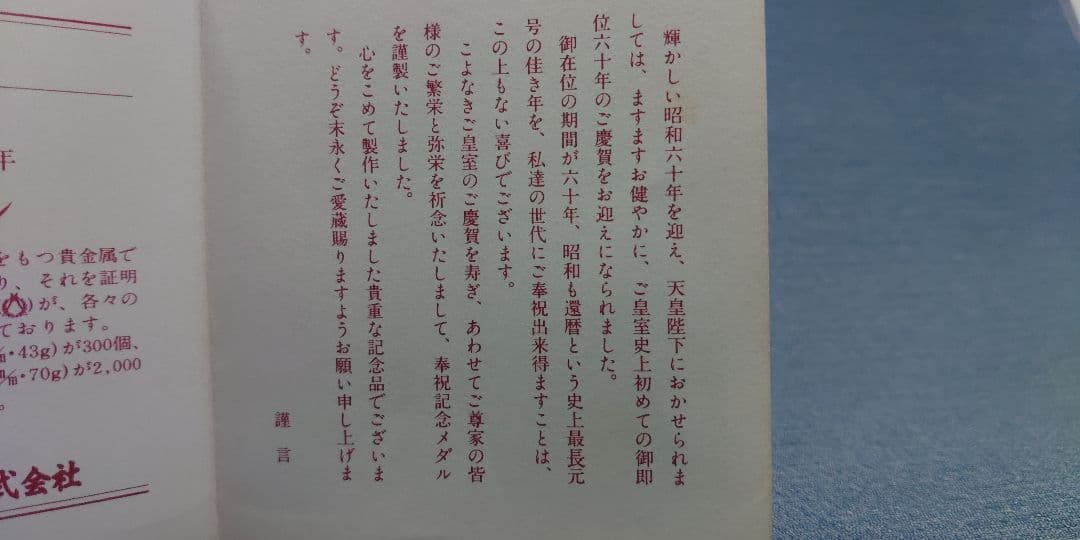 輝かしい昭和六十年を迎え、天皇陛下におかせられま
しては、ますますお健やかに、ご皇室史上初めての御即
位六十年のご慶賀をお迎えになられました。
御在位の期間が六十年、昭和も還暦という史上最長元
号の佳き年を、私達の世代にご奉祝出来得ますことは、
この上もない喜びでございます。
こよなきご皇室のご慶賀を寿ぎ、あわせてご尊家の皆
様のご繁栄と弥栄を祈念いたしまして、奉祝記念メダル
を謹製いたしました。
心をこめて製作いたしました貴重な記念品でございま
す。どうぞ末永くご愛蔵賜りますようお願い申し上げま
す。
謹言
年
をもつ貴金属で
り、それを証明
)が、各々の
ております。
・43g)が300個、
㎜・70g)が2,000
。
式会社